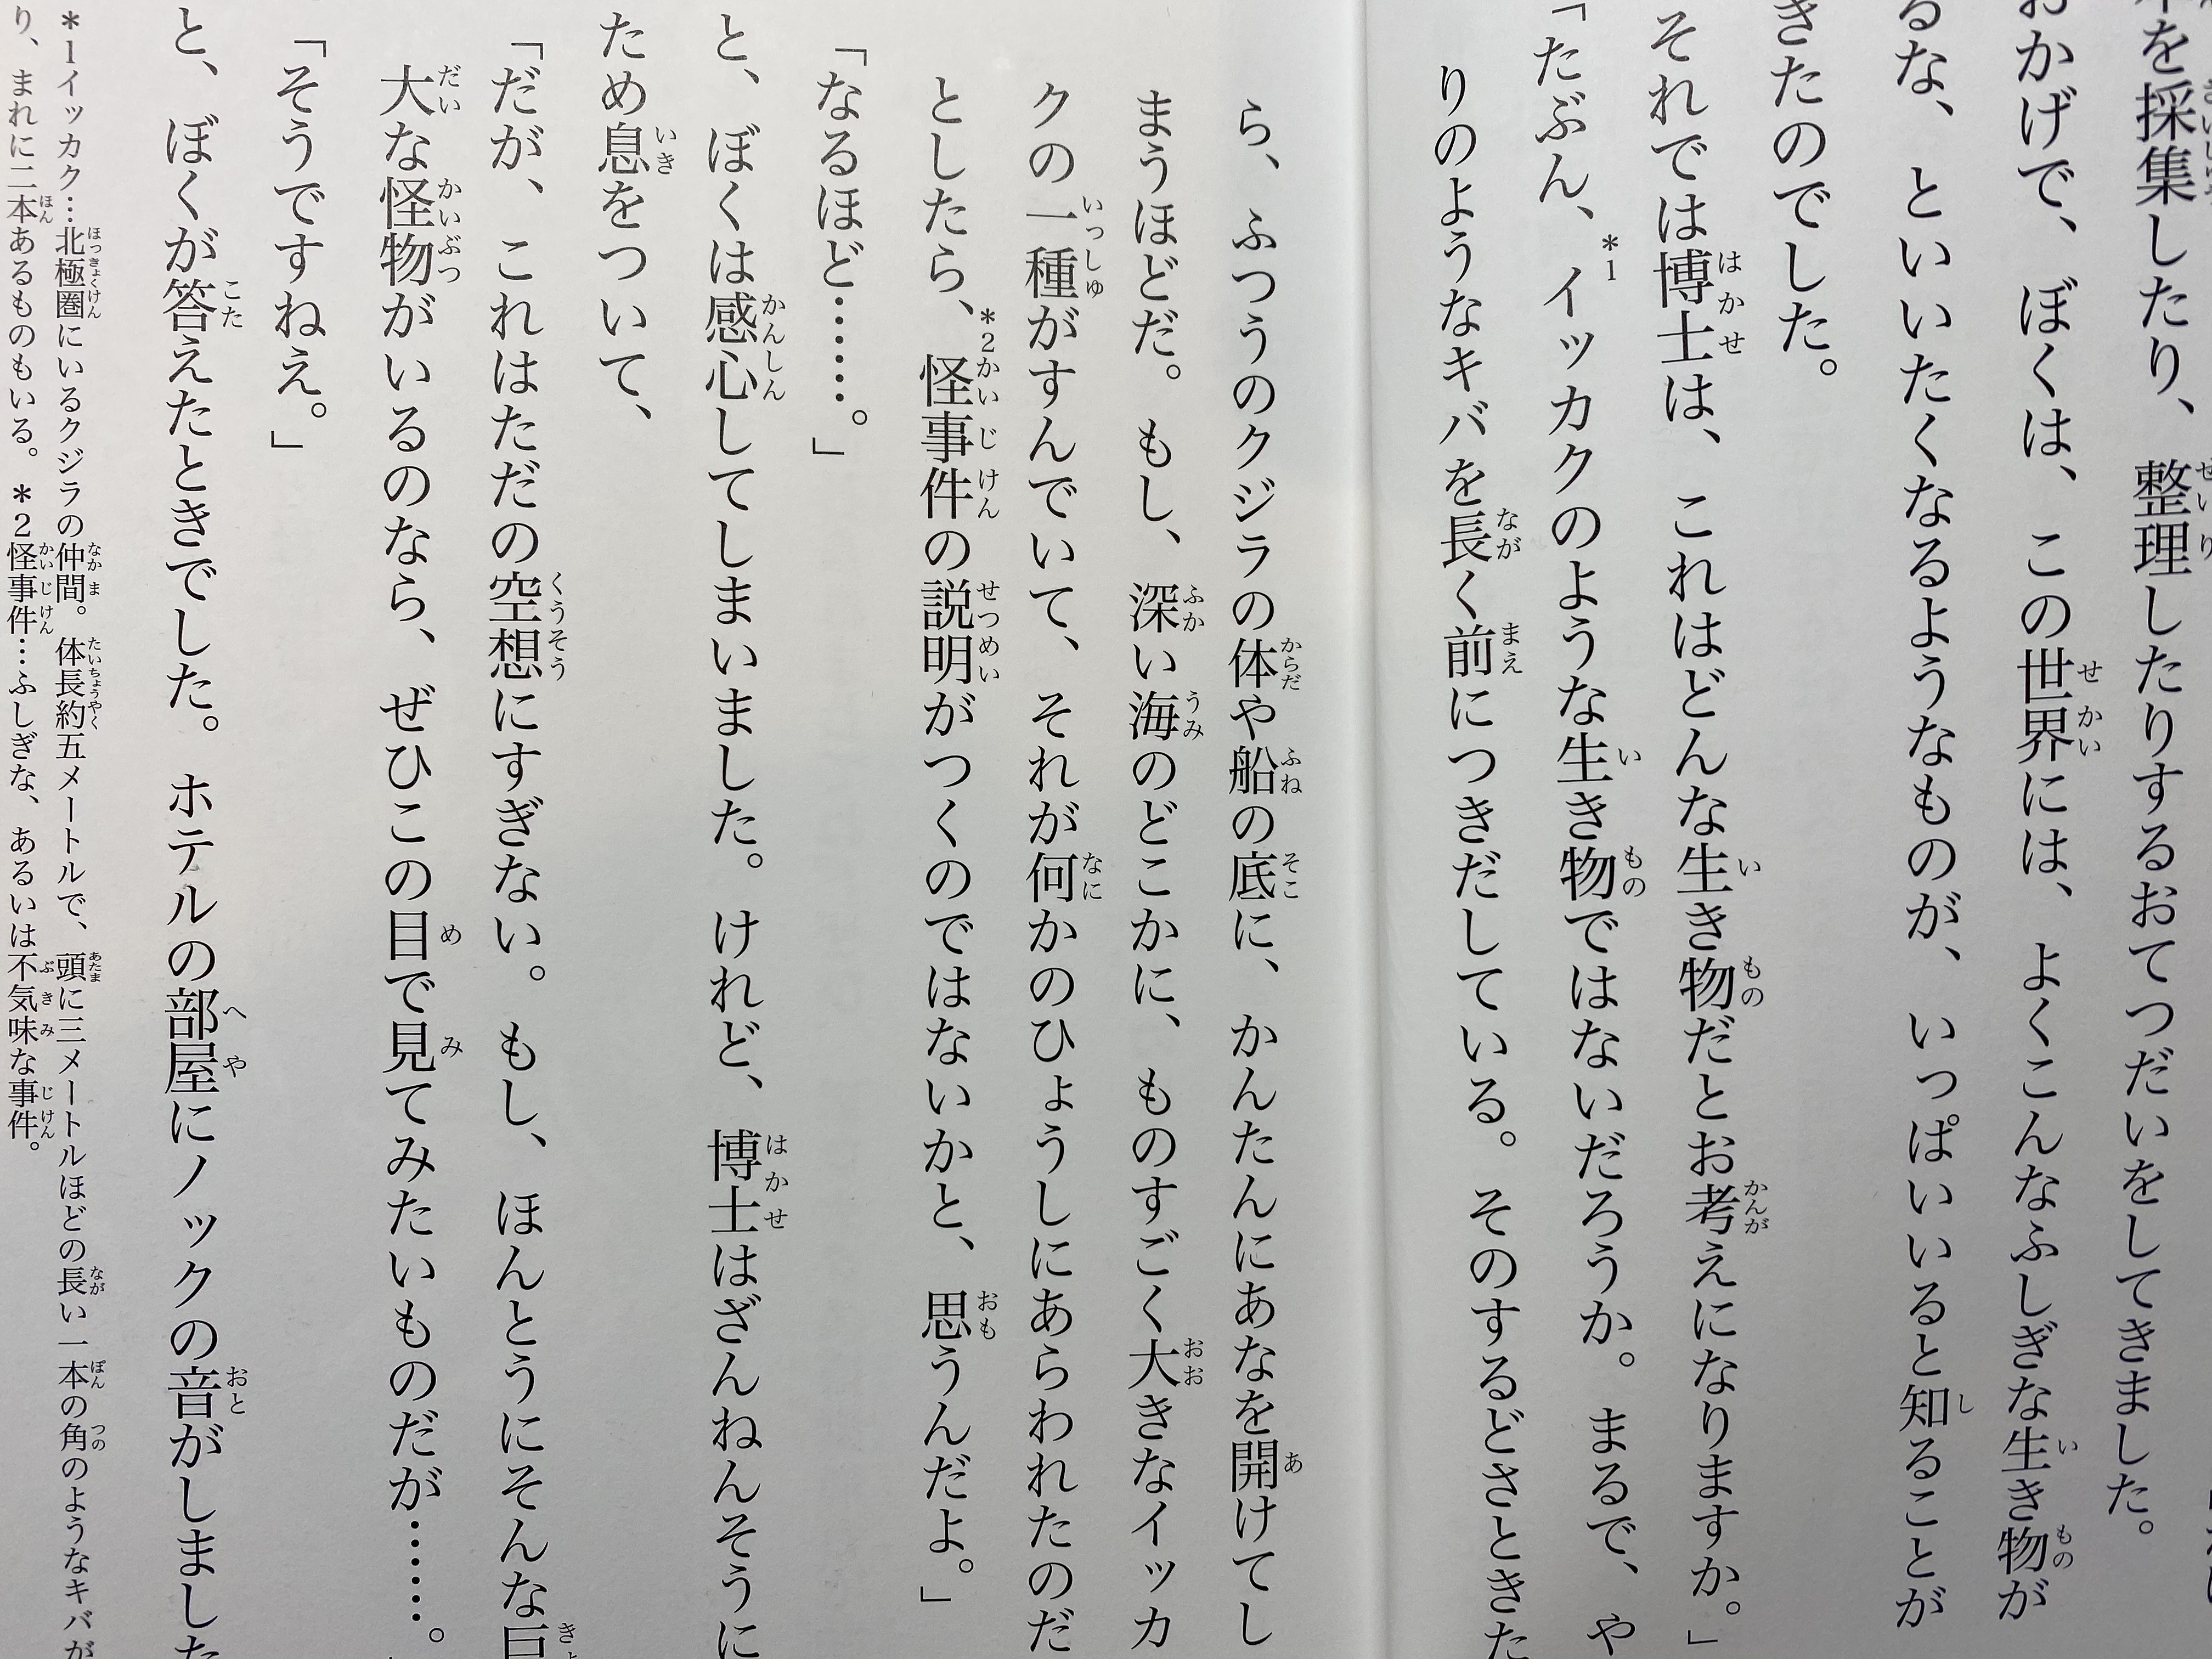 を採集したり、整理したりするおてつだいをしてきました。
おかげで、ぼくは、この世界には、よくこんなふしぎな生き物が
るな、といいたくなるようなものが、いっぱいいると知ることが
きたのでした。
それでは博士は、これはどんな生き物だとお考えになりますか。」
「たぶん、*1イッカクのような生き物ではないだろうか。まるで、や
りのようなキバを長く前につきだしている。そのするどさときた
ら、ふつうのクジラの体や船の底に、かんたんにあなを開けてし
まうほどだ。もし、深い海のどこかに、ものすごく大きなイッカ
クの一種がすんでいて、それが何かのひょうしにあらわれたのだ
としたら、*2怪事件の説明がつくのではないかと、思うんだよ。」
「なるほど……。」
と、ぼくは感心してしまいました。けれど、博士はざんねんそうに
ため息をついて、
「だが、これはただの空想にすぎない。もし、ほんとうにそんな巨
大な怪物がいるのなら、ぜひこの目で見てみたいものだが……。
「そうですねえ。」
と、ぼくが答えたときでした。ホテルの部屋にノックの音がしました
*1イッカク…北極圏にいるクジラの仲間。体長約五メートルで、頭に三メートルほどの長い一本の角のようなキバが
り、まれに二本あるものもいる。 *2怪事件…ふしぎな、あるいは不気味な事件。